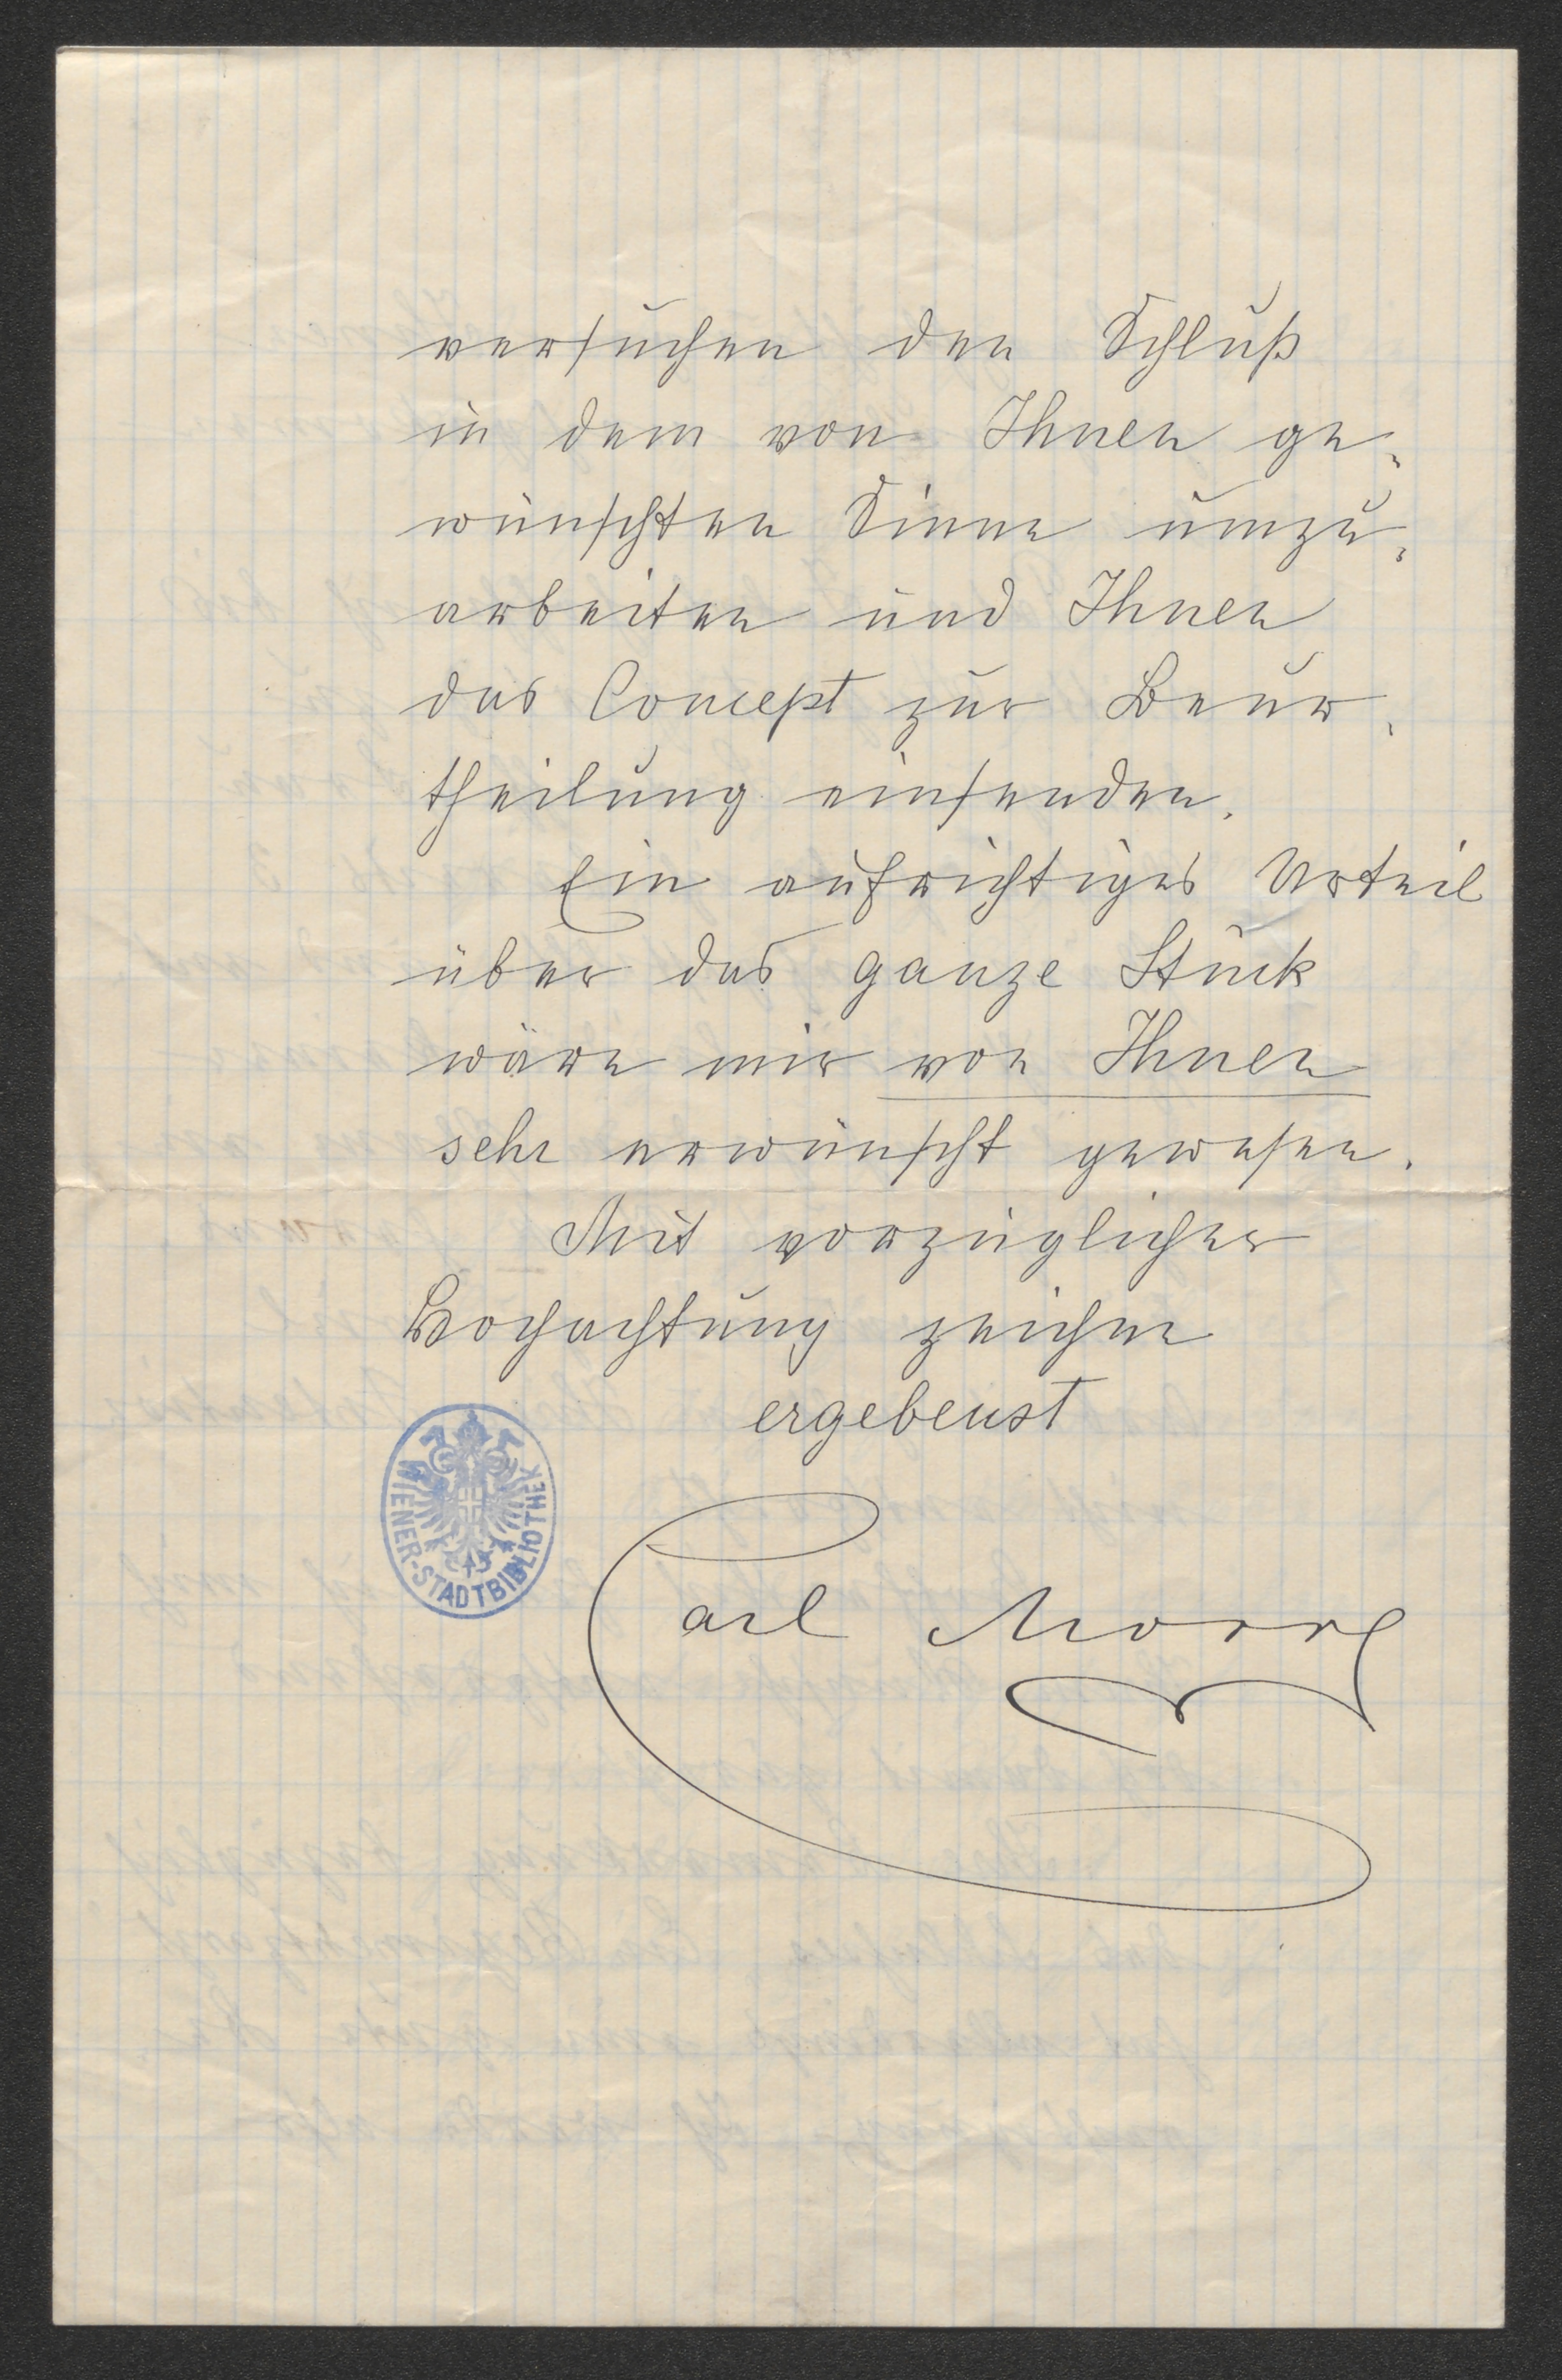 versuchen den Schluß
in dem von Ihnen ge-
wünschten Sinne umzu-
arbeiten und Ihnen
das Concept zur Beur-
theilung einsenden.
Ein aufrichtiges Urteil
über das ganze Stück
wäre mir von Ihnen
sehr erwünscht gewesen.
Mit vorzüglicher
Hochachtung zeichne
ergebenst
WIENER-STADTBIBLIOTHEK
Carl Morre